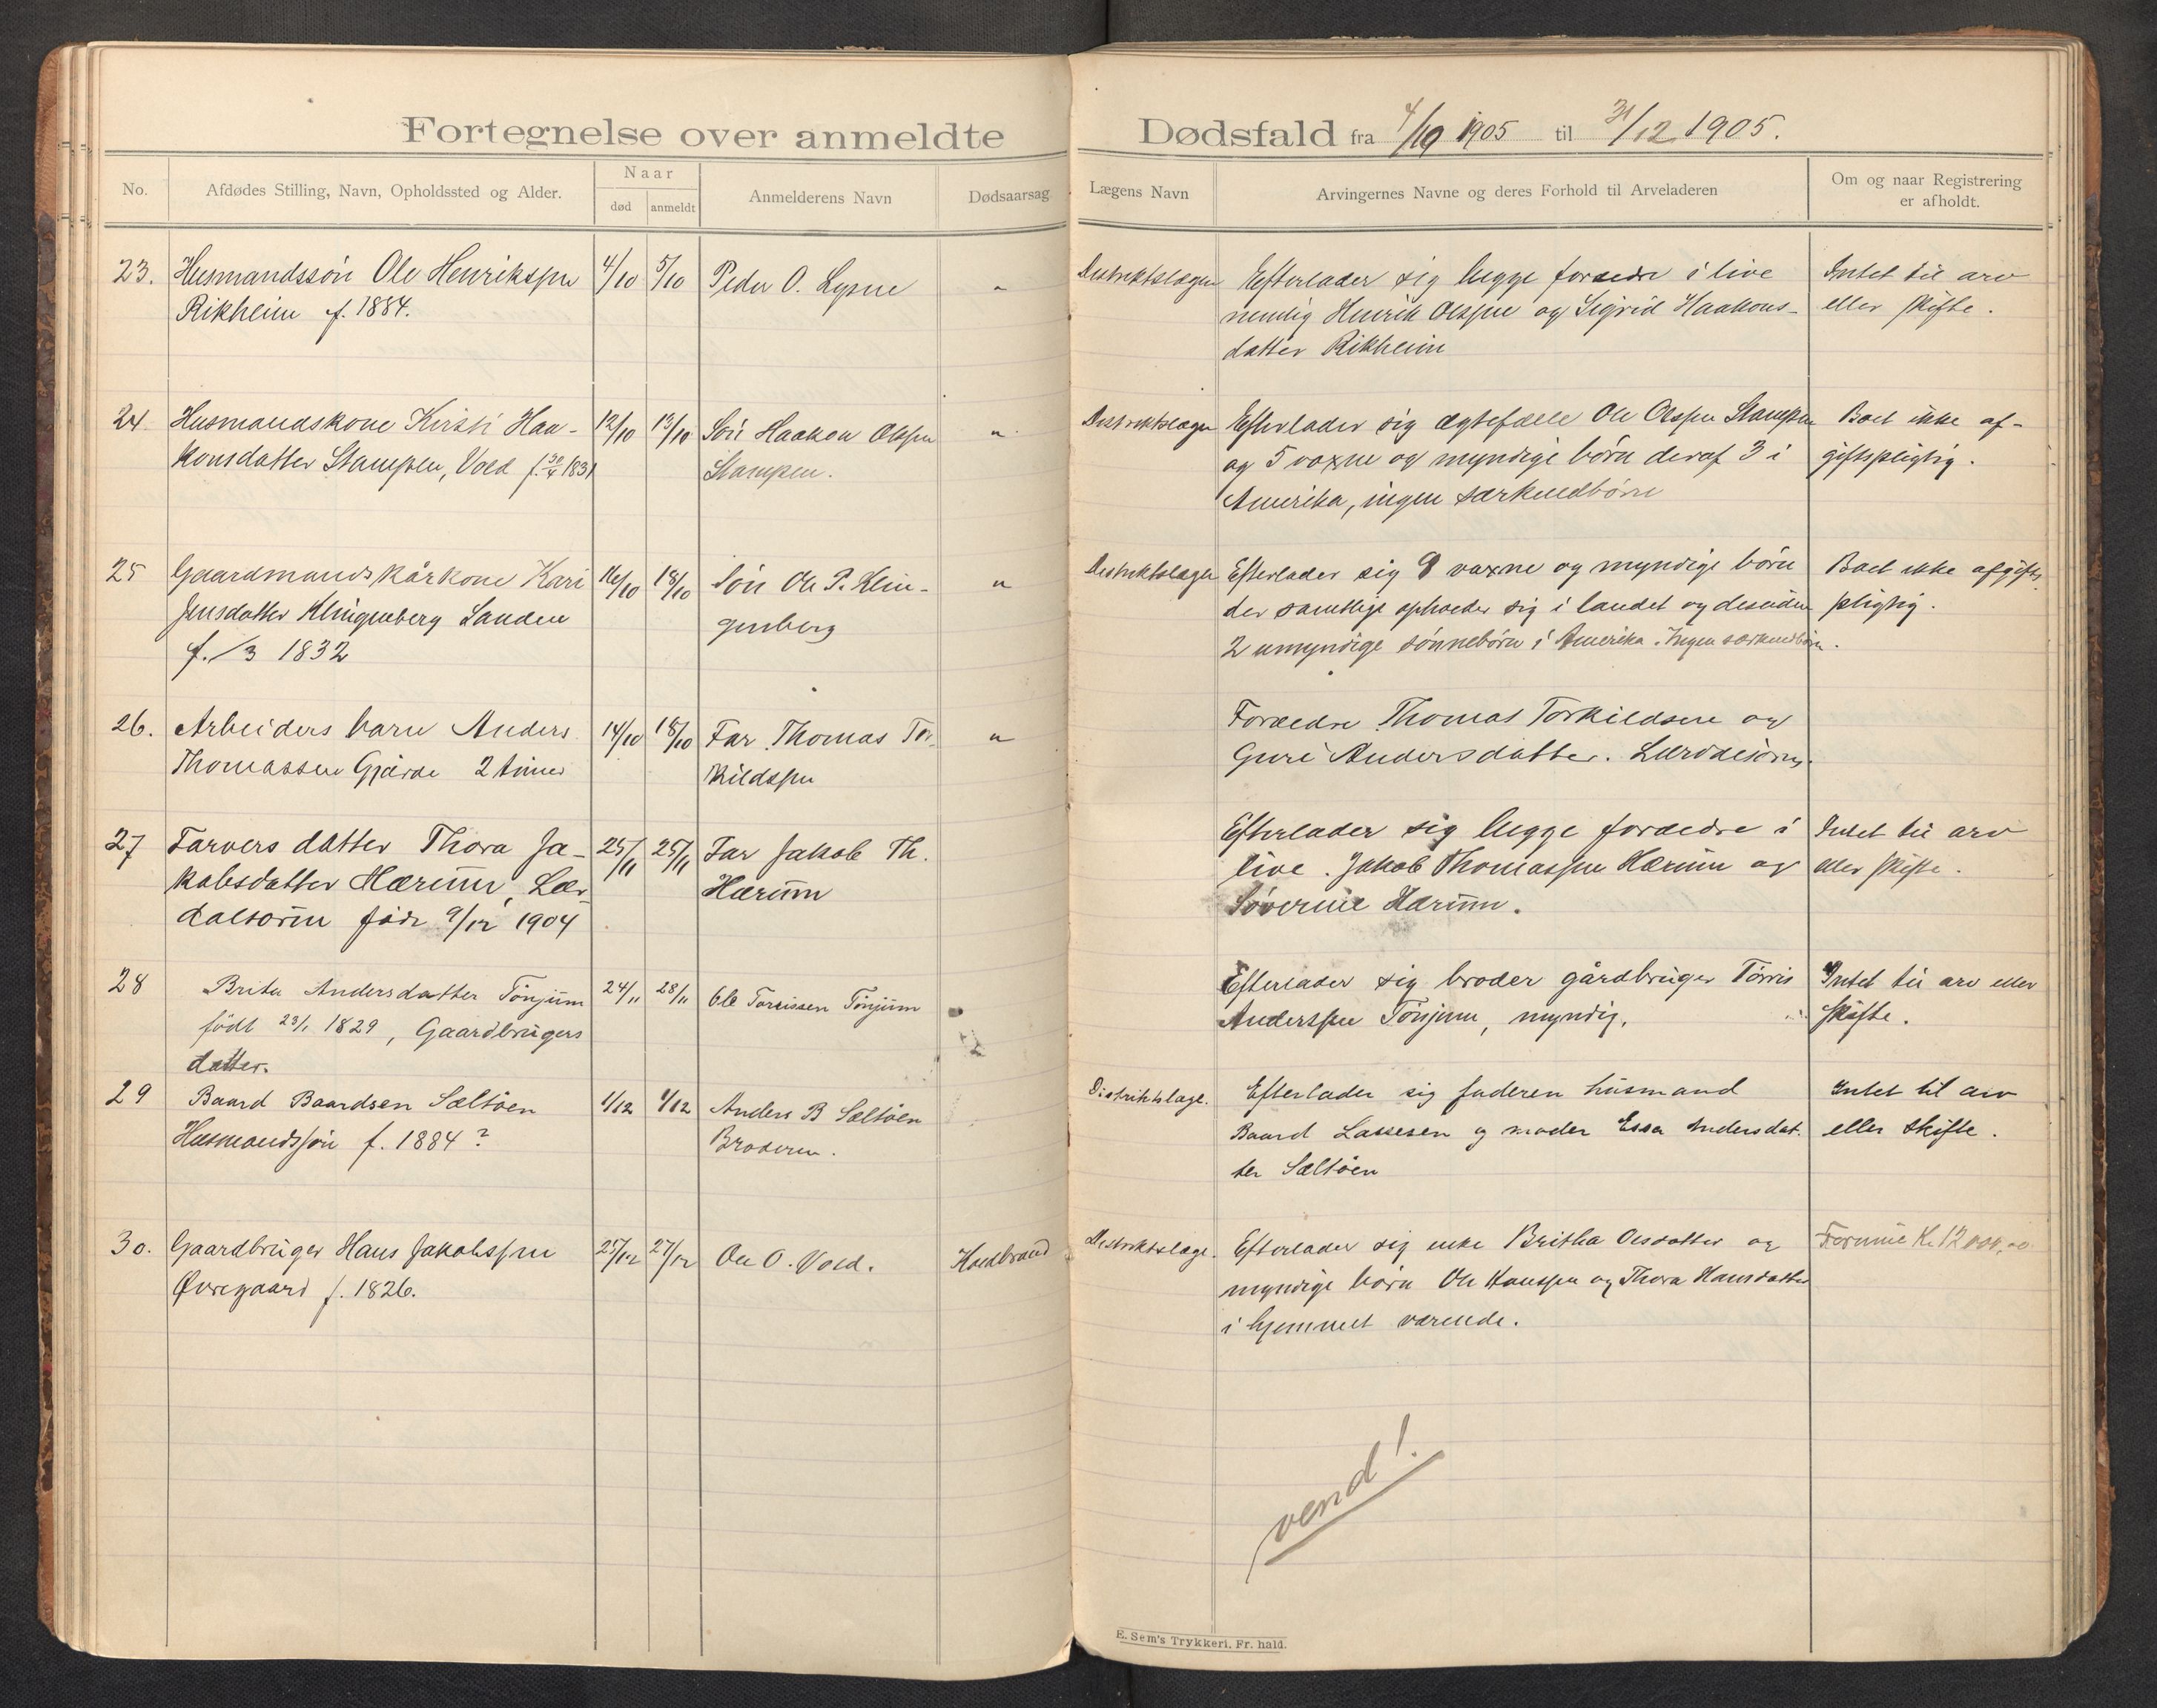 Fortegnelse over anmeldte Dødsfald fra 4/10 1905 til 31/12 1905.
No.
Afdødes Stilling, Navn, Opholdssted og Alder.
Naar
død
anmeldt
Anmelderens Navn
Dødsaarsag
Lægens Navn
Arvingernes Navne og deres Forhold til Arveladeren
Om og naar Registrering
er afholdt.
23. Husmandssön Ole Henrikssen 4/10 5/10 Peder O. Lysne " Distriktslægen Efterlader sig begge forældre i live Intet til arv
Rikheim f. 1884. nemlig Henrik Olssen og Sigrid Haakons- eller skifte.
datter Rikheim
24. Husmandskone Kirsti Haa- 12/10 13/10 Sön Haakon Olssen " Distriktslægen Efterlader sig ægtefælle Ole Olssen Stampen Boet ikke af-
konsdatter Stampen, Vold f. 30/4 1831 Stampen. og 5 voxne og myndige börn deraf 3 i giftspligtig.
Amerika, ingen særkuldbörn
25 Gaardmandskårkone Kari 16/10 18/10 Sön Ole P. Klin- " Distriktslægen Efterlader sig 8 voxne og myndige börn Boet ikke afgifts
Jensdatter Klingenberg Sanden genberg der samtlige opholder sig i landet og desuden pligtig.
f. /3 1832 2 umyndige sönnebörn i Amerika. Ingen særkuldbörn.
26. Arbeiders barn Anders 14/10 18/10 Far Thomas Tor- " Forældre Thomas Torkildsen og
Thomassen Gjärde 2 timer kildssen Guri Andersdatter. Lærdalsören.
27 Farvers datter Thora Ja- 25/11 25/11 Far Jakob Th. Efterlader sig begge forældre i Intet til arv
kobsdatter Hærum, Lær- Hærum live. Jakob Thomassen Hærum og eller skifte.
dalsörin föde 9/12 1904 Söverine Hærum.
28 Brita Andersdatter Tönjum 24/11 28/11 Ole Torrissen Tönjum Efterlader sig broder gårdbruger Törris Intet til arv eller
födt 23/1 1829, Gaardbrugers Anderssen Tönjum, myndig. skifte.
datter.
29 Baard Baardsen Sæltöen 1/12 1/12 Anders B Sæltöen Distriktslæge. Efterlader sig faderen husmand Intet til arv
Husmandssön f. 1884? Broderen. Baard Lassesen og moder Essa Andersdat- eller skifte.
ter Sæltöen
30. Gaardbruger Hans Jakobssen 25/12 27/12 Ole O. Vold. Koldbrand Distriktslæge. Efterlader sig enke Britha Olsdatter og Formue Kr. 12000,00
Øvregaard f. 1826. myndige börn Ole Hanssen og Thora Hansdatter
i hjemmet værende.
vend!
E. Sem's Trykkeri, Fr. hald.